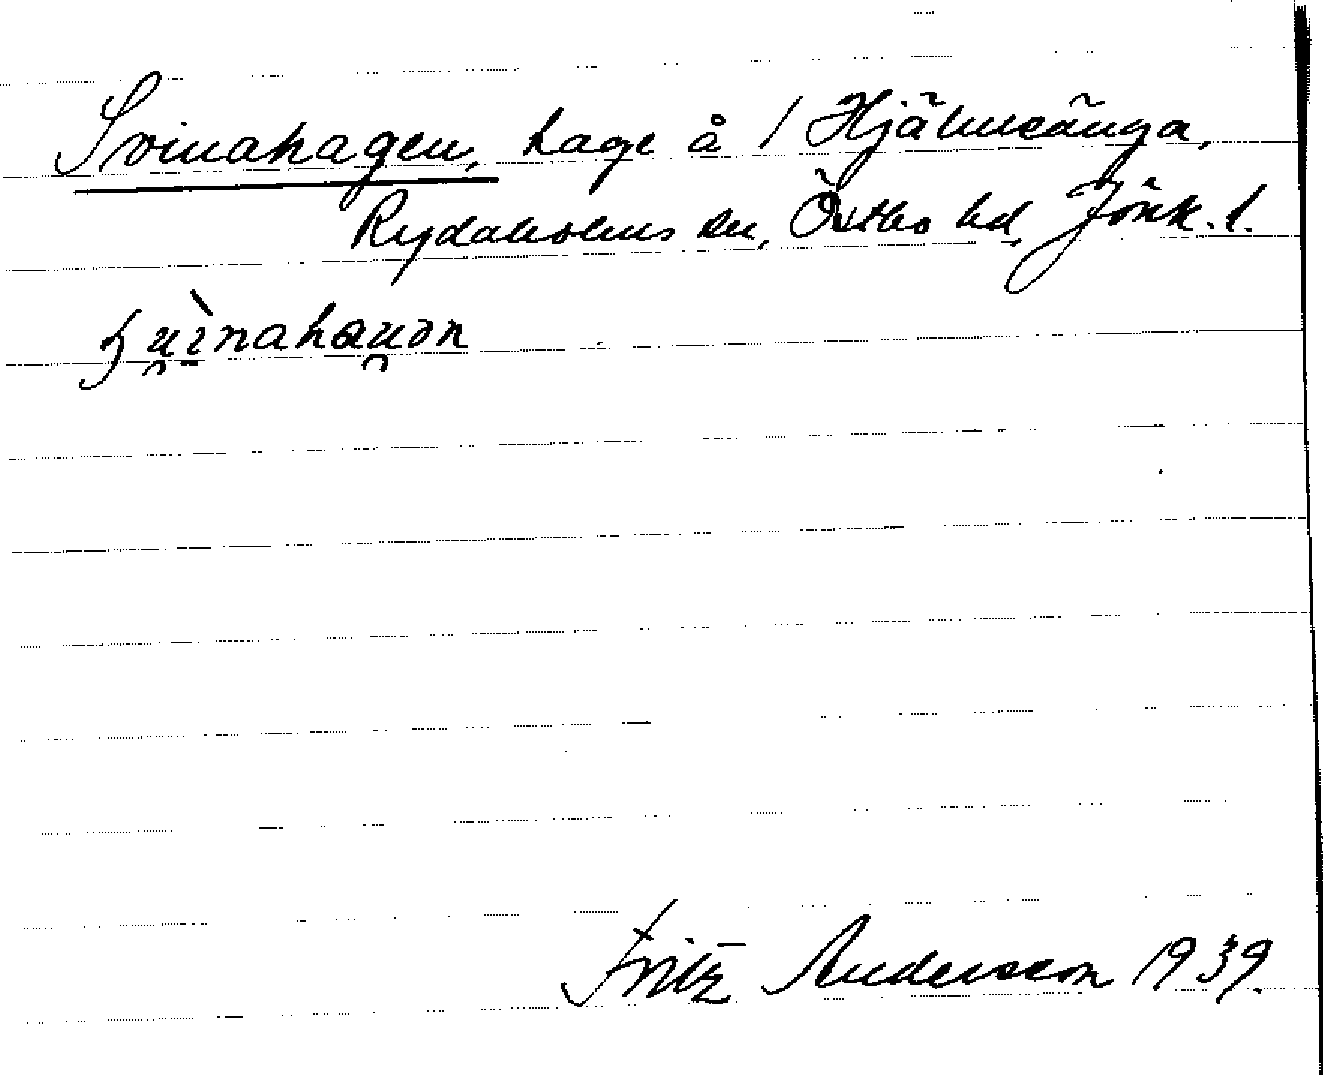 Svinahagen, hage å / Hjälmsänga,
Rydaholms sn, Östbo hd, Jönk. l.
Fritz Andersson 1939.